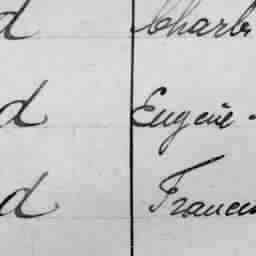 d Charles
d Eugène
d Francis